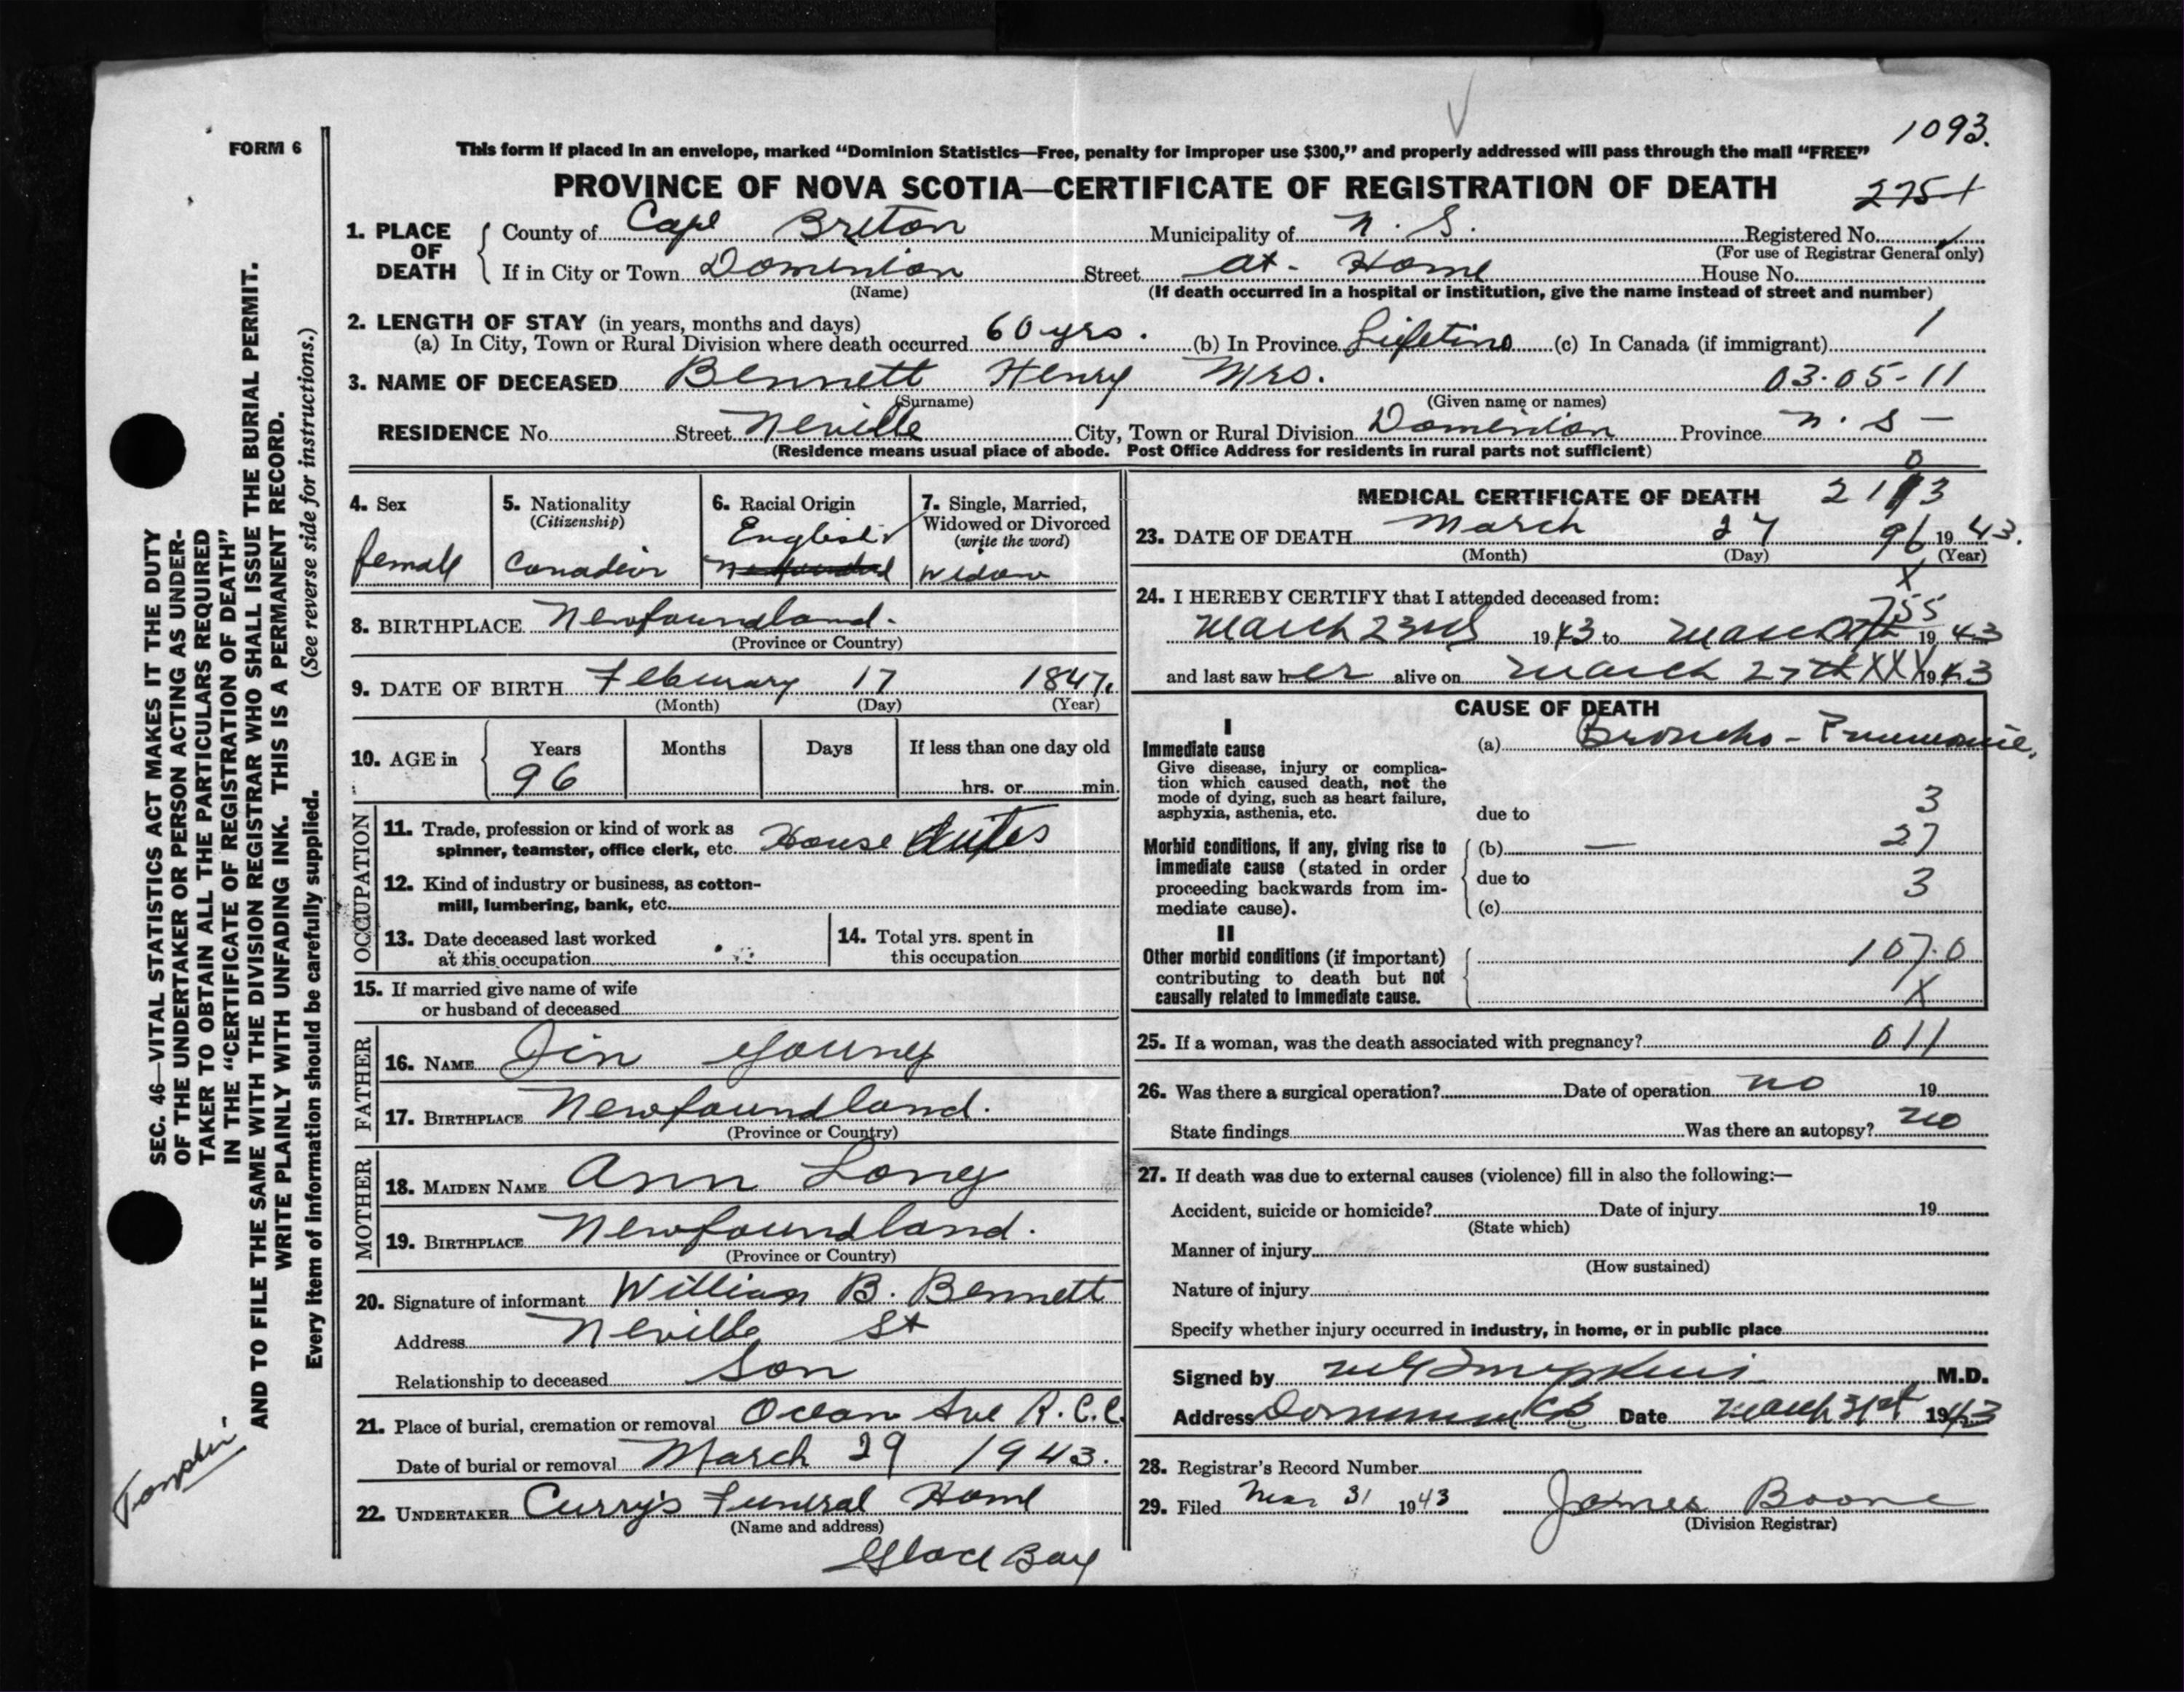 1093.
FORM 6
This form if placed in an envelope, marked “Dominion Statistics—Free, penalty for improper use $300,” and properly addressed will pass through the mail “FREE”
PROVINCE OF NOVA SCOTIA—CERTIFICATE OF REGISTRATION OF DEATH
1. PLACE OF DEATH County of Cape Breton Municipality of N. S. Registered No.
(For use of Registrar General only)
If in City or Town Dominion Street at Home House No.
(Name) (If death occurred in a hospital or institution, give the name instead of street and number)
2. LENGTH OF STAY (in years, months and days)
(a) In City, Town or Rural Division where death occurred 60 yrs. (b) In Province Lifetime (c) In Canada (if immigrant) 1
3. NAME OF DECEASED Bennett Henry Mrs. 03-05-11
(Surname) (Given name or names)
RESIDENCE No. Street Neville City, Town or Rural Division Dominion Province N. S -
(Residence means usual place of abode. Post Office Address for residents in rural parts not sufficient)
4. Sex
female
5. Nationality
(Citizenship)
Canadian
6. Racial Origin
English
7. Single, Married,
Widowed or Divorced
(write the word)
Widow
8. BIRTHPLACE Newfoundland.
(Province or Country)
9. DATE OF BIRTH February 17 1847.
(Month) (Day) (Year)
10. AGE in
Years Months Days If less than one day old
96 hrs. or min.
OCCUPATION
11. Trade, profession or kind of work as
spinner, teamster, office clerk, etc. House duties
12. Kind of industry or business, as cotton-
mill, lumbering, bank, etc.
13. Date deceased last worked
at this occupation
14. Total yrs. spent in
this occupation
15. If married give name of wife
or husband of deceased
FATHER
16. NAME Jim Young
17. BIRTHPLACE Newfoundland.
(Province or Country)
MOTHER
18. MAIDEN NAME Ann Long
19. BIRTHPLACE Newfoundland.
(Province or Country)
20. Signature of informant William B. Bennett
Address Neville St
Relationship to deceased Son
21. Place of burial, cremation or removal Ocean Ave R.C.C.
Date of burial or removal March 29 1943.
22. UNDERTAKER Curry's Funeral Home
(Name and address)
Glace Bay
MEDICAL CERTIFICATE OF DEATH
23. DATE OF DEATH March 27 96 1943.
(Month) (Day) (Year)
24. I HEREBY CERTIFY that I attended deceased from:
755
March 23rd 1943 to March 27th 1943
and last saw her alive on March 27th XXX 1943
CAUSE OF DEATH
I
Immediate cause
Give disease, injury or complica-
tion which caused death, not the
mode of dying, such as heart failure,
asphyxia, asthenia, etc.
(a) Broncho - Pneumonia.
due to 3
Morbid conditions, if any, giving rise to
immediate cause (stated in order
proceeding backwards from im-
mediate cause).
(b) — 27
due to 3
(c)
II
Other morbid conditions (if important)
contributing to death but not
causally related to immediate cause.
107.0
X
25. If a woman, was the death associated with pregnancy? 011
26. Was there a surgical operation? Date of operation no 19
State findings Was there an autopsy? no
27. If death was due to external causes (violence) fill in also the following:—
Accident, suicide or homicide? Date of injury 19
(State which)
Manner of injury
(How sustained)
Nature of injury
Specify whether injury occurred in industry, in home, or in public place
Signed by M.D.
Address Dominion CB Date March 31st 1943
28. Registrar's Record Number
29. Filed Mar 31 1943 James Boone
(Division Registrar)
SEC. 46—VITAL STATISTICS ACT MAKES IT THE DUTY
OF THE UNDERTAKER OR PERSON ACTING AS UNDER-
TAKER TO OBTAIN ALL THE PARTICULARS REQUIRED
IN THE “CERTIFICATE OF REGISTRATION OF DEATH”
AND TO FILE THE SAME WITH THE DIVISION REGISTRAR WHO SHALL ISSUE THE BURIAL PERMIT.
WRITE PLAINLY WITH UNFADING INK. THIS IS A PERMANENT RECORD.
Every item of information should be carefully supplied. (See reverse side for instructions.)